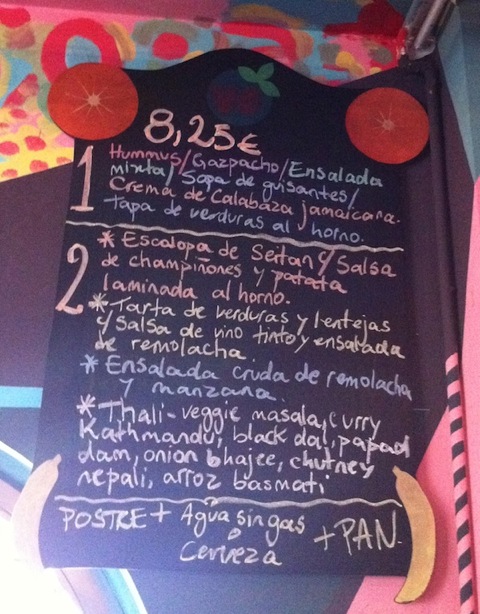 8,25€
1 Hummus/Gazpacho/Ensalada
mixta/Sopa de guisantes/
Crema de Calabaza jamaicana.
Tapa de verduras al horno.
2 * Escalopa de Seitan y Salsa
de champiñones y patata
laminada al horno.
* Tarta de verduras y lentejas
y salsa de vino tinto y ensalada
de remolacha.
* Ensalada cruda de remolacha
y manzana.
* Thali-veggie masala, curry
Kathmandú, black dal, papad
dam, onion bhajee, chutney
nepali, arroz basmati
POSTRE + Agua sin gas + PAN.
o
Cerveza